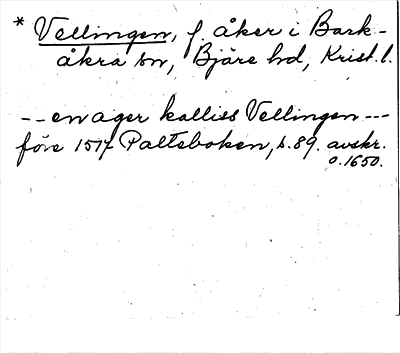 * Vellingen, f. åker i Bark-
åkra sn, Bjäre hd, Krist. l.
-- en ager kalliss Vellingen ---
före 1517 Palteboken, s. 89. avskr.
o. 1650.